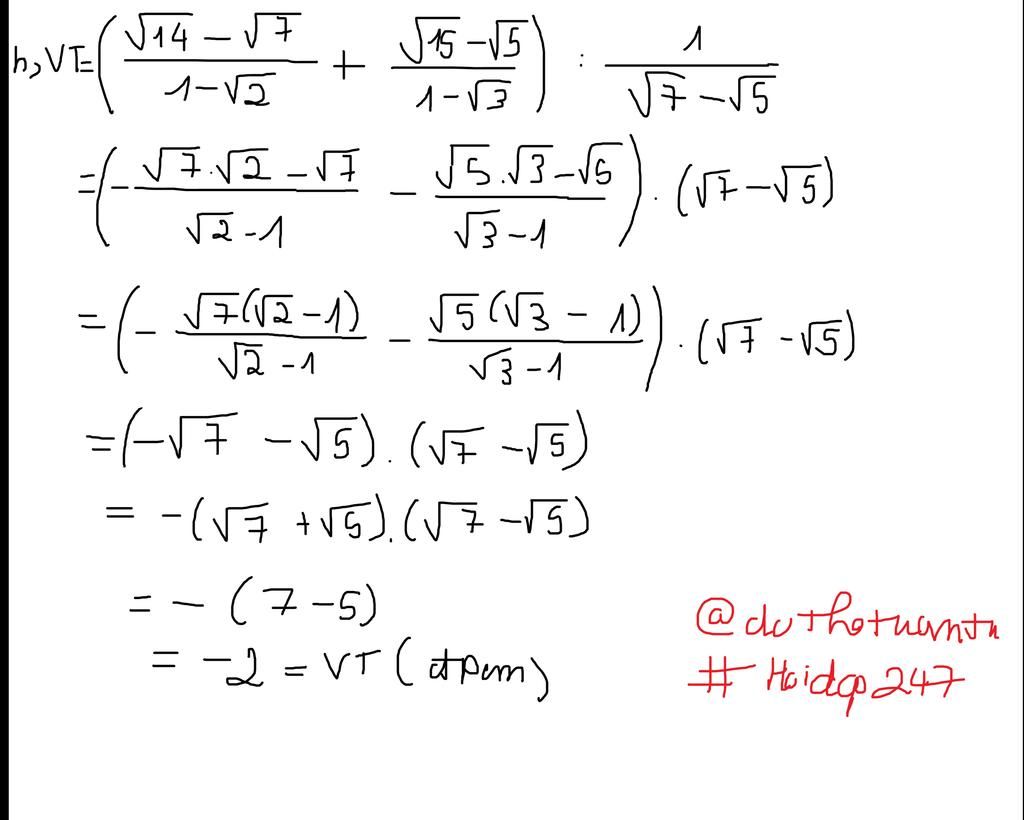 b, VT = (\frac{\sqrt{14} - \sqrt{7}}{1 - \sqrt{2}} + \frac{\sqrt{15} - \sqrt{5}}{1 - \sqrt{3}}) : \frac{1}{\sqrt{7} - \sqrt{5}}
= (-\frac{\sqrt{7}.\sqrt{2} - \sqrt{7}}{\sqrt{2} - 1} - \frac{\sqrt{5}.\sqrt{3} - \sqrt{5}}{\sqrt{3} - 1}) . (\sqrt{7} - \sqrt{5})
= (-\frac{\sqrt{7}(\sqrt{2} - 1)}{\sqrt{2} - 1} - \frac{\sqrt{5}(\sqrt{3} - 1)}{\sqrt{3} - 1}) . (\sqrt{7} - \sqrt{5})
= (-\sqrt{7} - \sqrt{5}) . (\sqrt{7} - \sqrt{5})
= -(\sqrt{7} + \sqrt{5}) . (\sqrt{7} - \sqrt{5})
= -(7 - 5)
= -2 = VT (đpcm)
#Hoidap247